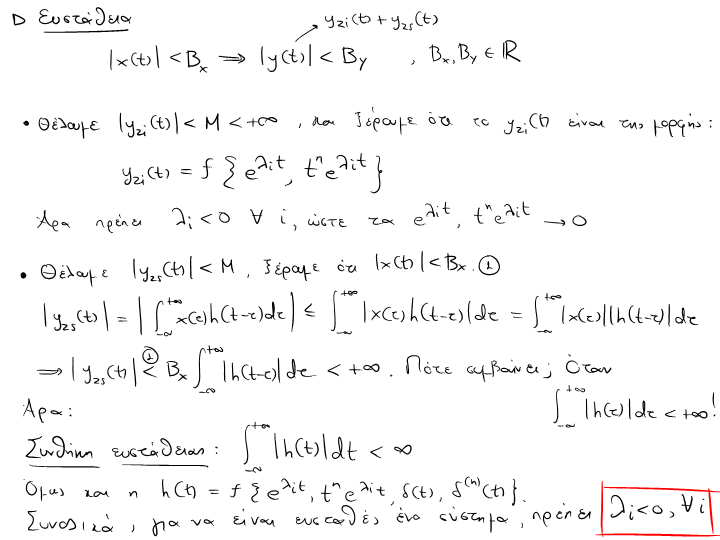 ▷ Ευστάθεια
y_{zi}(t) + y_{zs}(t)
|x(t)| < B_x ⟹ |y(t)| < B_y , B_x, B_y ∈ ℝ
• Θέλουμε |y_{zi}(t)| < M < +∞ , και ξέρουμε ότι το y_{zi}(t) είναι της μορφής:
y_{zi}(t) = f { e^{λ_i t}, t^n e^{λ_i t} }
Άρα πρέπει λ_i < 0 ∀ i, ώστε τα e^{λ_i t}, t^n e^{λ_i t} → 0
• Θέλουμε |y_{zs}(t)| < M, ξέρουμε ότι |x(t)| < B_x. ①
|y_{zs}(t)| = |∫_{-∞}^{+∞} x(τ)h(t-τ)dτ| ≤ ∫_{-∞}^{+∞} |x(τ)h(t-τ)|dτ = ∫_{-∞}^{+∞} |x(τ)||h(t-τ)|dτ
⟹ |y_{zs}(t)| <^{①} B_x ∫_{-∞}^{+∞} |h(t-τ)|dτ < +∞. Πότε συμβαίνει; Όταν
∫_{-∞}^{+∞} |h(τ)|dτ < +∞!
Άρα:
Συνθήκη ευστάθειας: ∫_{-∞}^{+∞} |h(t)|dt < ∞
Όμως και η h(t) = f { e^{λ_i t}, t^n e^{λ_i t}, δ(t), δ^{(n)}(t) }.
Συνολικά, για να είναι ευσταθές ένα σύστημα, πρέπει λ_i < 0, ∀ i